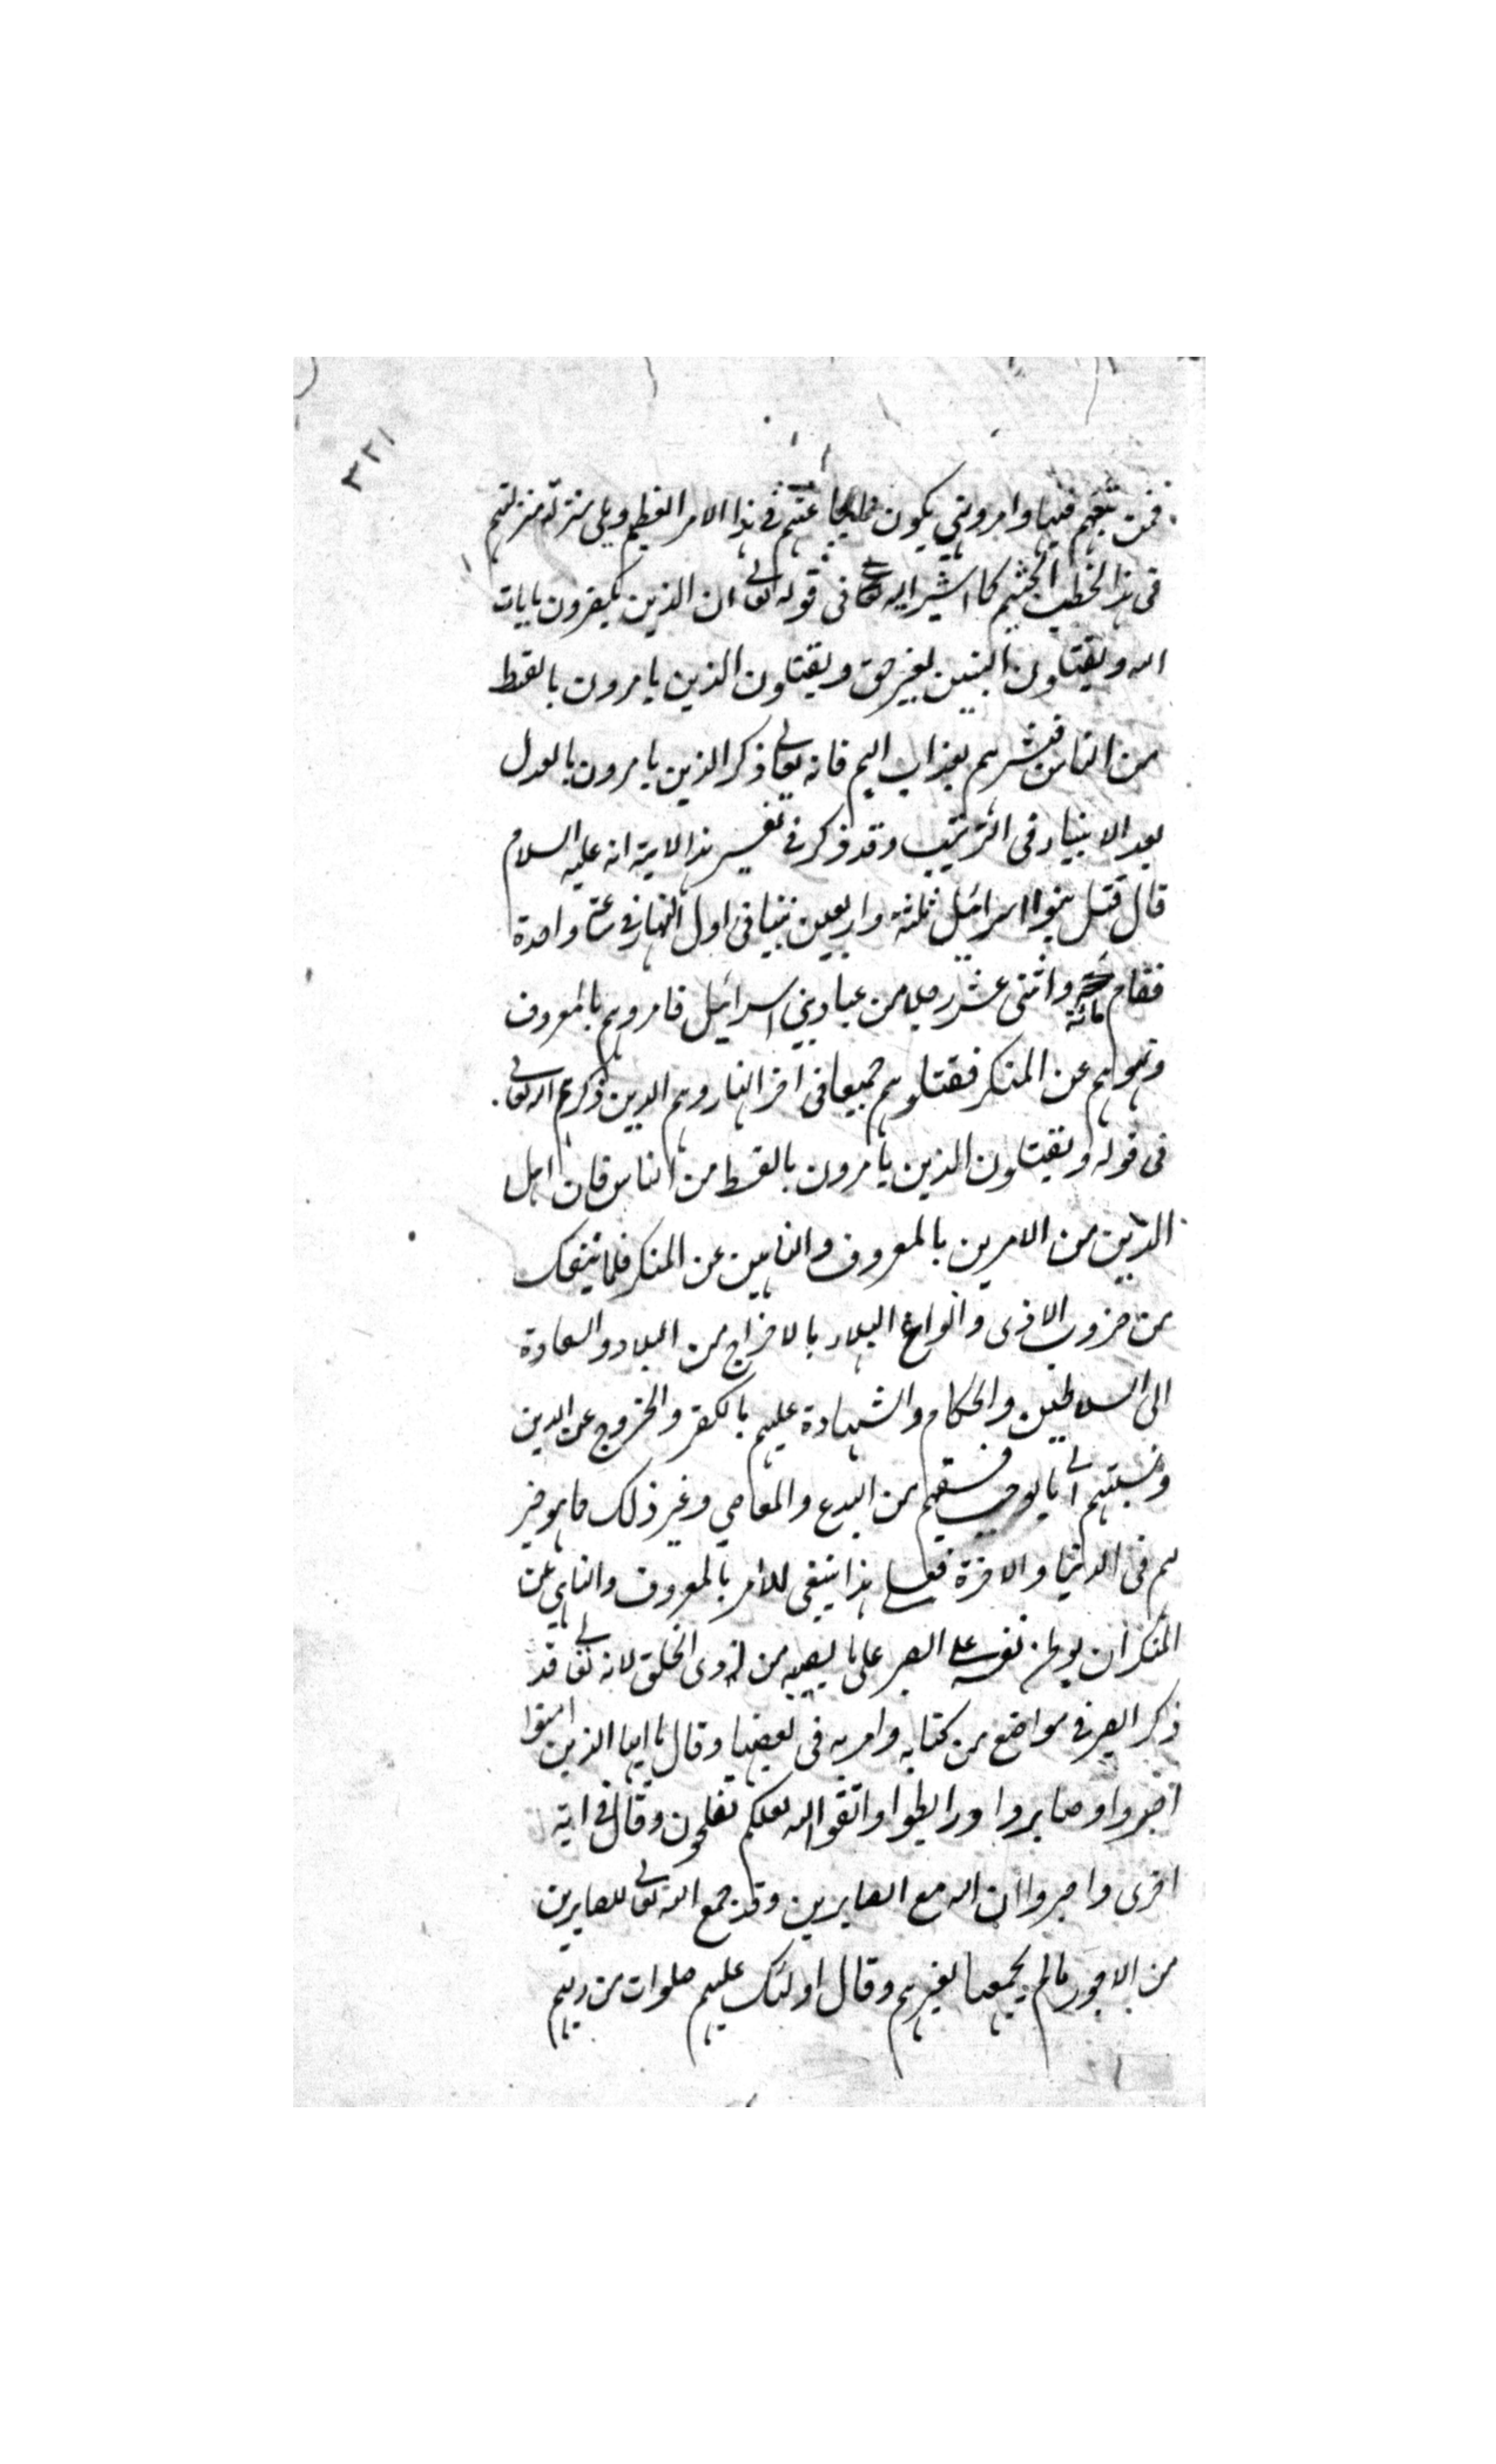 ٣٢١
فمن تبعهم فيها وامر ونهي يكون في هذا الامر العظيم وعلى منزلة منزلتهم
في هذا الخطب الجثيم كما اشير اليه في قوله تعالى ان الذين يكفرون بايات
الله ويقتلون النبيين بغير حق ويقتلون الذين يامرون بالقسط
من الناس فبشرهم بعذاب اليم فانه تعالى ذكر الذين يامرون بالعدل
بعد الانبياء في الترتيب وقد ذكر في تفسير هذا الاية انه عليه السلام
قال قتل بنوا اسرائيل ثلثة واربعين نبيا في اول النهار في ساعة واحدة
فقام مائة واثنى عشر رجلا من عباد بني اسرائيل فامروهم بالمعروف
ونهوهم عن المنكر فقتلوهم جميعا في اخر النهار وهم الذين ذكرهم الله تعالى
في قوله ويقتلون الذين يامرون بالقسط من الناس فان اهل
الدين من الامرين بالمعروف والناهين عن المنكر فلما ينفك
من ضروب الاذى وانواع البلاء بالاخراج من البلاد والسعادة
الى السلاطين والحكام والشهادة عليهم بالكفر والخروج عن الدين
ونسبتهم الى ما يوجب فسقهم من البدع والمعاصي وغير ذلك ما هو خير
لهم في الدنيا والاخرة فعلى هذا ينبغي للامر بالمعروف والناهي عن
المنكر ان يوطن نفسه على الصبر على ما يصيبه من اذى الخلق لانه تعالى قد
ذكر الصبر في مواضع من كتابه وامر به في بعضها وقال يا ايها الذين امنوا
اصبروا وصابروا ورابطوا واتقوا الله لعلكم تفلحون وقال في اية
اخرى واصبروا ان الله مع الصابرين وقد جمع الله تعالى للصابرين
من الاجور ما لم يجمعها لغيرهم وقال اولئك عليهم صلوات من ربهم